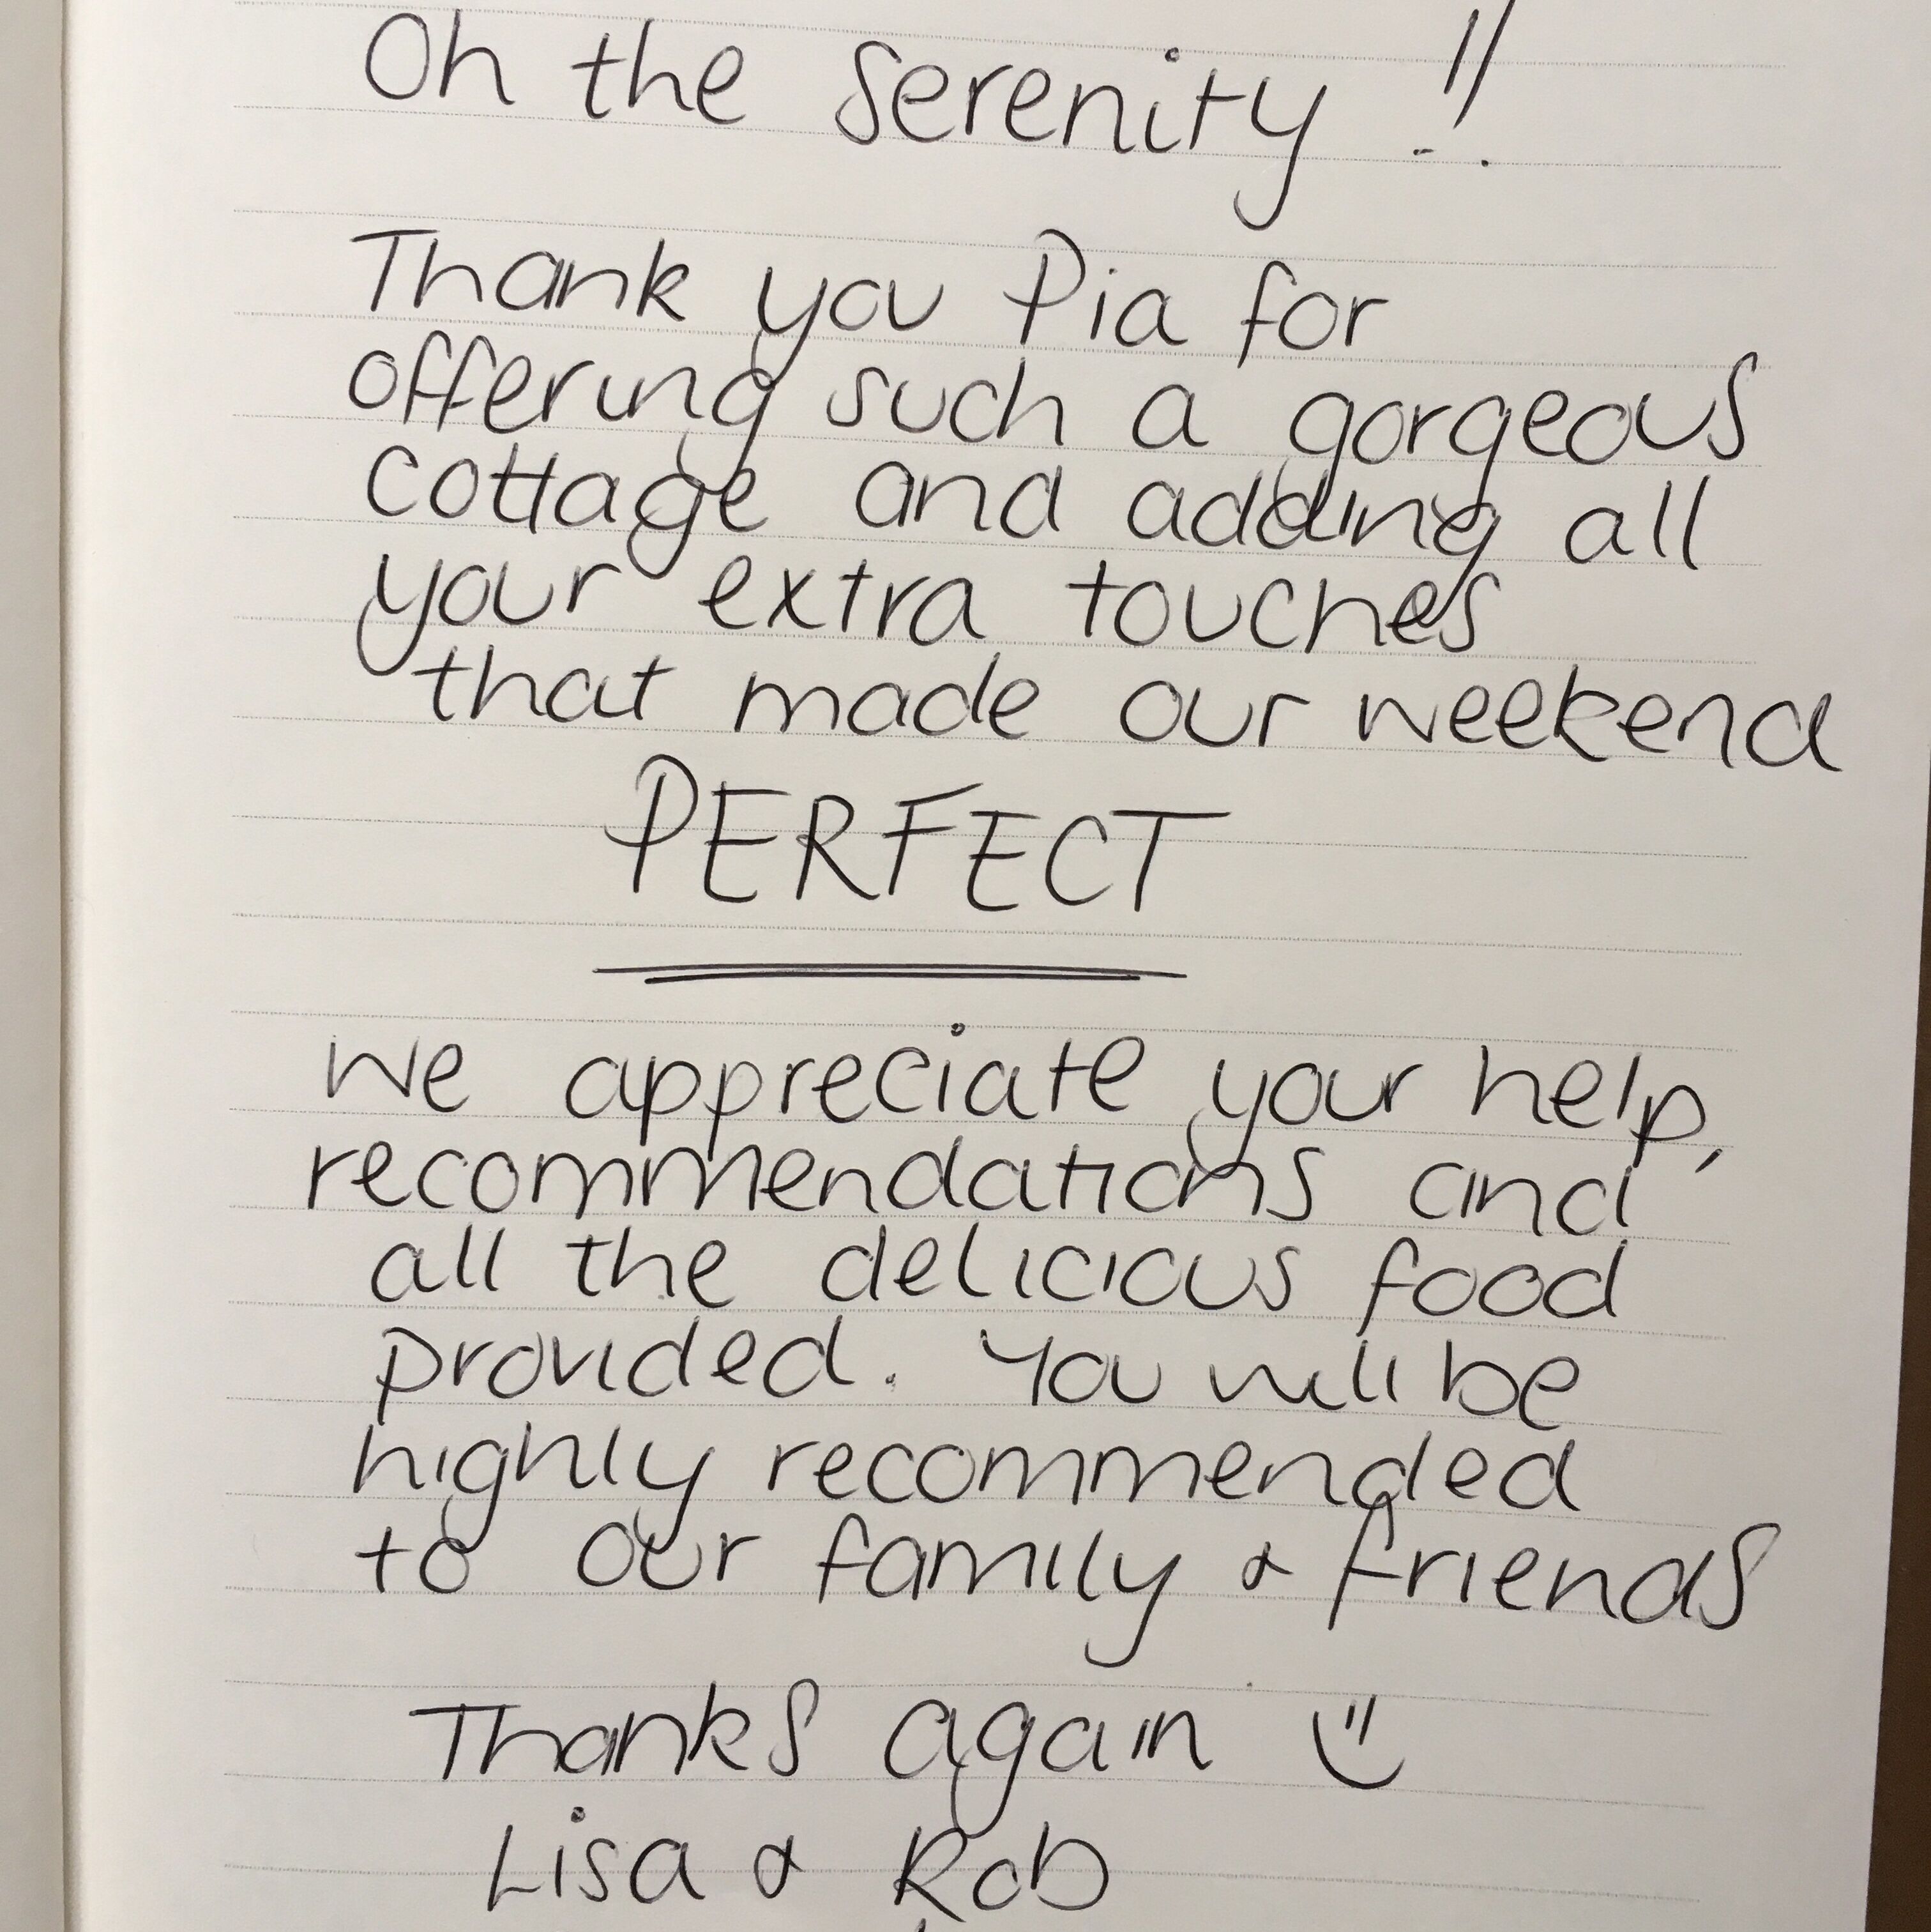 Oh the serenity !!
Thank you Pia for
offering such a gorgeous
cottage and adding all
your extra touches
that made our weekend
PERFECT
We appreciate your help,
recommendations and
all the delicious food
provided. You will be
highly recommended
to our family & friends
Thanks again
Lisa & Rob